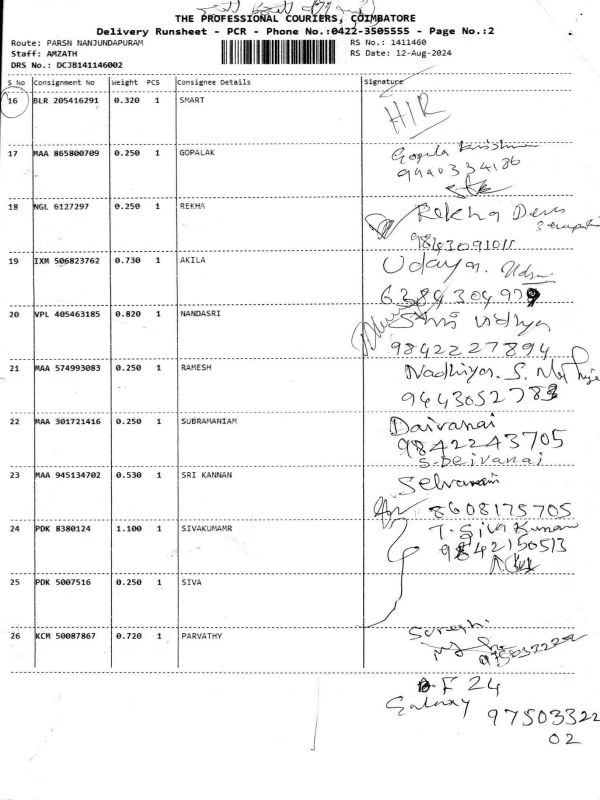 THE PROFESSIONAL COURIERS, COIMBATORE
Delivery Runsheet - PCR - Phone No.:0422-3505555 - Page No.:2
Route: PARSN NANJUNDAPURAM RS No.: 1411460
Staff: AMZATH RS Date: 12-Aug-2024
DRS No.: DCJB141146002
S No Consignment No Weight PCS Consignee Details Signature
16 BLR 205416291 0.320 1 SMART HIR
17 MAA 865800709 0.250 1 GOPALAK Gopala Krishna
9990334186
18 NGL 6127297 0.250 1 REKHA Rekha Devi
9843091011
19 IXM 506823762 0.730 1 AKILA Udaya.
6384304979
20 VPL 405463185 0.820 1 NANDASRI Sri Vidhya
9842227894
21 MAA 574993083 0.250 1 RAMESH Nadhiya. S.
9443052783
22 MAA 301721416 0.250 1 SUBRAMANIAM Daivanai
9842243705
S. Deivanai
23 MAA 945134702 0.530 1 SRI KANNAN Selvarani
8608175705
24 PDK 8380124 1.100 1 SIVAKUMAMR T. Siva Kumar
9842150513
25 PDK 5007516 0.250 1 SIVA
26 KCM 50087867 0.720 1 PARVATHY Suresh
F 24
Galaxy 97503322
02